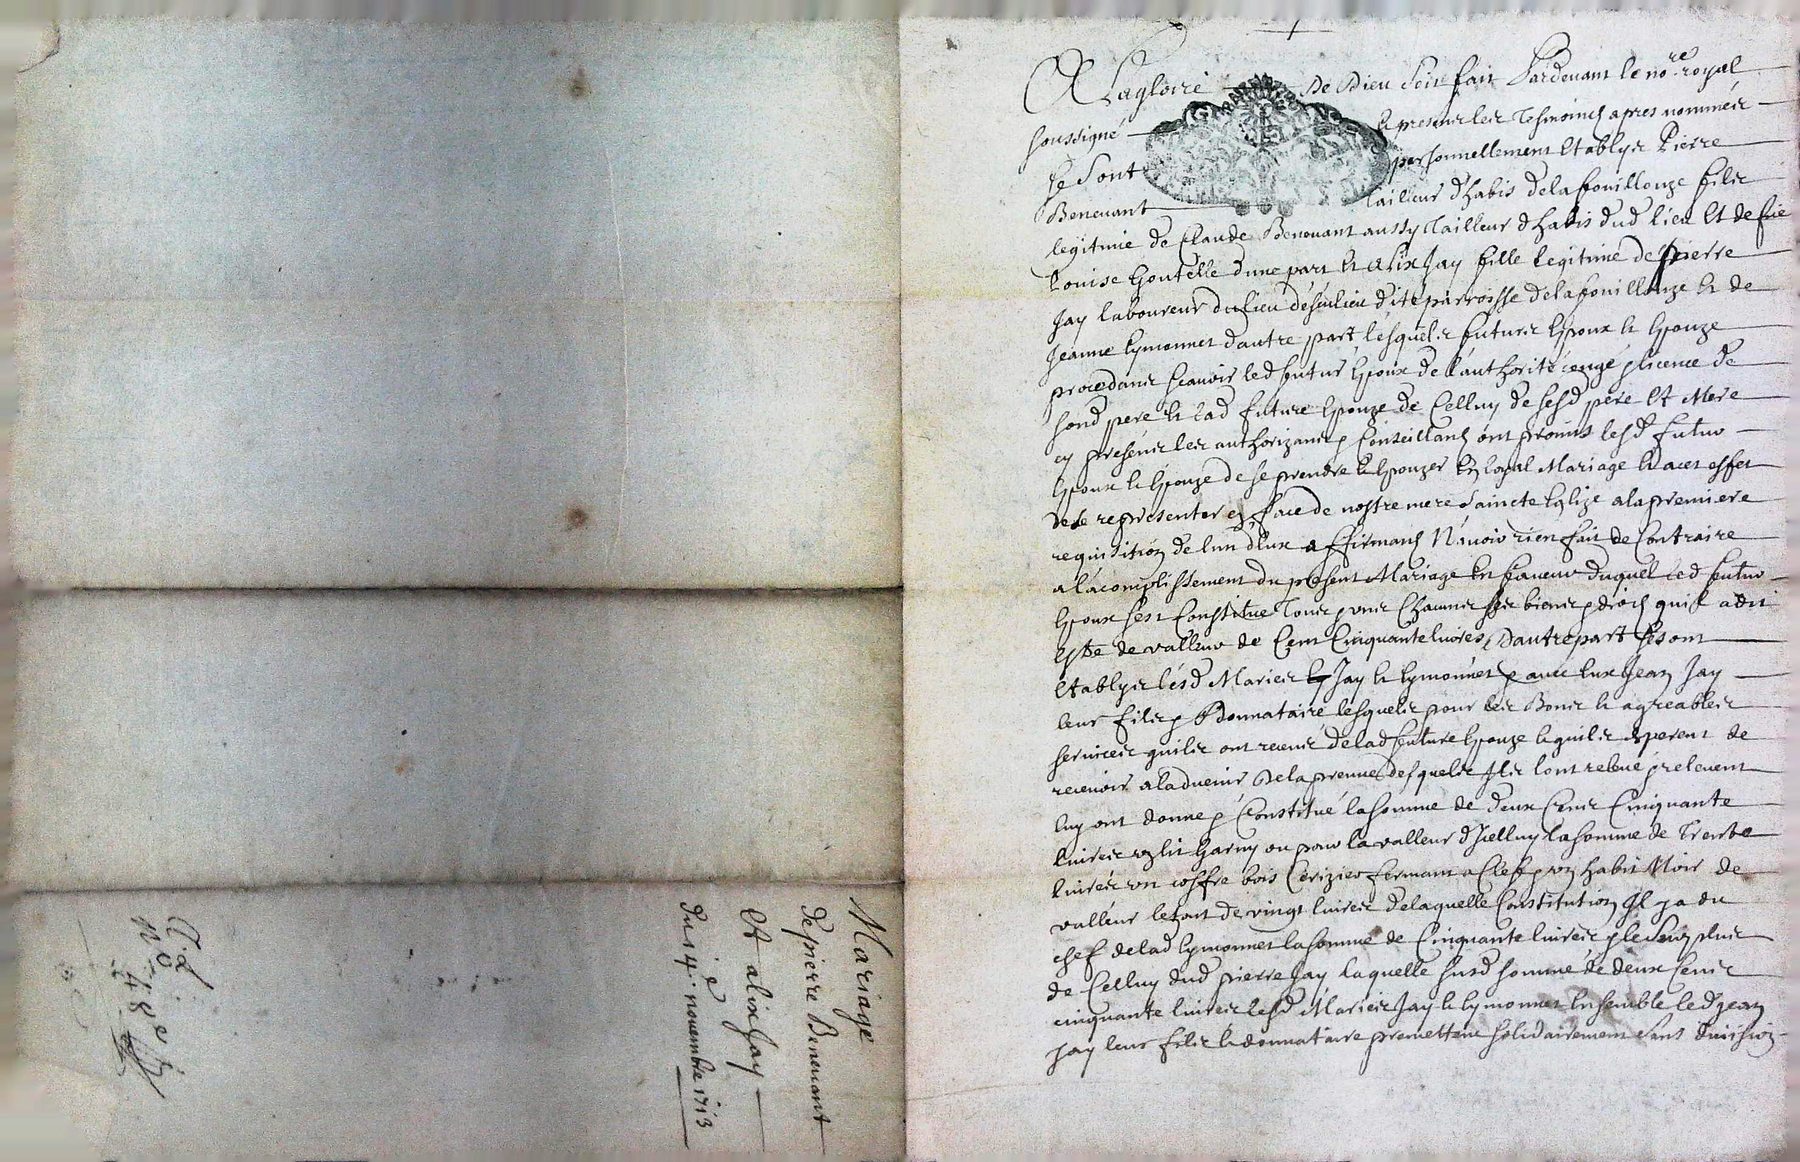 Mariage
de pierre Benevant
Et alix Jay
du 14.e novembre 1713
A La gloire De Dieu soit fait Pardevant le no.re royal
soussigné & presents les Tesmoings apres nommés
se sont personnellement Establys Pierre
Benevant Tailleur d'habis de la fouillouze fils
legitime de Claude Benevant aussy Tailleur d'habis dud lieu Et de fue
Louise Goutelle d'une part & Alix Jay fille Legitime de Pierre
Jay laboureur du lieu de dite parroisse de la fouillouze & de
Jeanne Eymonnet d'autre part lesquels futurs Epoux & Epouze
procedants scavoir led futur Epoux de l'authorité congé & licence de
sond pere & lad future Epouze de Celluy de sesd pere Et Mere
cy presents les authorizants & Conseillants ont promis lesd futur
Epoux & Epouze de se prendre & Epouzer En loyal Mariage & a cet effet
de se representer en face de nostre mere Saincte Eglize a la premiere
requisition de l'un d'Eux affirmants N'avoir rien fait de Contraire
a l'acomplissement du present Mariage En faveur duquel led futur
Epoux s'est Constitue Tous & uns Chacuns ses biens & droits qu'il a dit
Estre de valleur de Cent Cinquante livres, D'autre part se sont
Establys lesd Mariés Jay & Eymonnet & avec Eux Jean Jay
leur fils & Donnataire lesquels pour les Bons & agreables
services qu'ils ont receus de lad future Epouze & qu'ils Esperent de
recevoir a l'advenir De la preuve desquels Ils l'ont relevé & relevent
luy ont donné & Constitué la somme de deux Cents Cinquante
livres un lit Garny ou pour la valleur d'Icelluy la somme de Trente
livres un coffre bois Cerizier fermant a Clef & un habit Noir de
valleur le tout de vingt livres de laquelle Constitution Il y a du
chef de lad Eymonnet la somme de Cinquante livres & le surplus
de Celluy dud pierre Jay laquelle susd somme de deux Cents
cinquante livres lesd Mariés Jay & Eymonnet Ensemble led Jean
Jay leur fils & donnataire promettent solidairement sans division